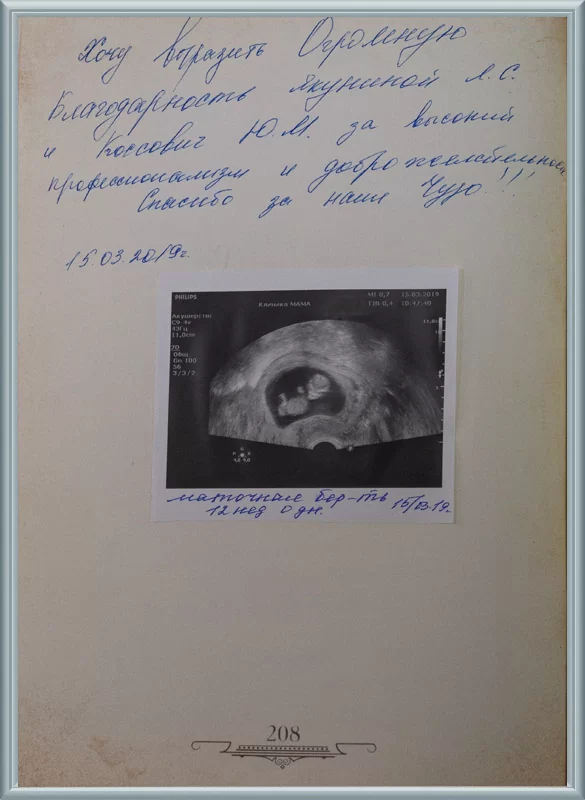 Хочу Выразить Огромную
Благодарность Якуниной Л.С.
и Коссович Ю.М. за высокий
профессионализм и доброжелательность
Спасибо за наше Чудо!!!
15.03.2019г.
PHILIPS
Клиника МАМА
MI 0,7 15-03-2019
TIB 0,4 10:47:40
Акушерство
C9-4v
43Гц
11,0cm
2D
Общ
Gn 100
56
3/3/2
маточная бер-ть
12 нед 0 дн. 15/03.19г.
208